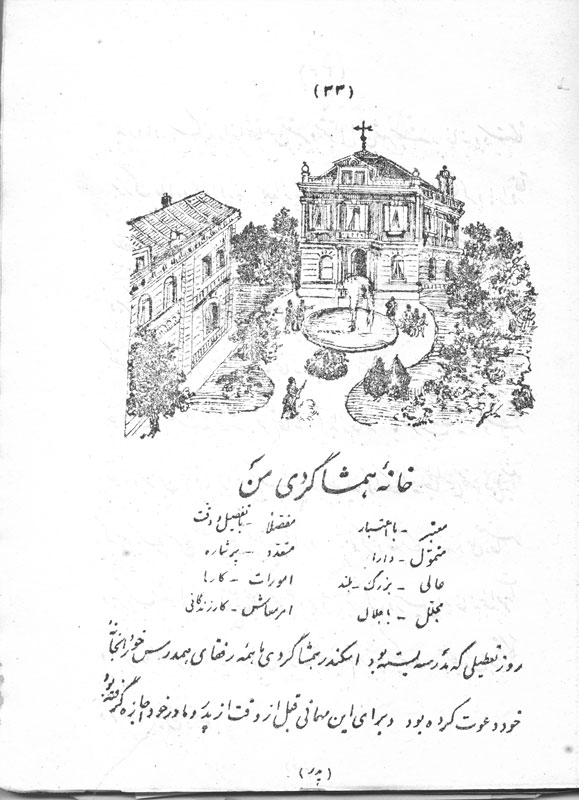 (٣٣)
خانهٔ همشاگردی من
معتبر - با اعتبار مفصلاً - با تفصیل و دقت
متموّل - دارا متعدد - پرشماره
عالی - بزرگ - بلند امورات - کارها
مجلّل - باجلال امر معاش - کار زندگانی
روز تعطیلی که مدرسه بسته بود اسکندر همشاگردی ما همه رفقای همدرس خود را بخانهٔ
خود دعوت کرده بود و برای این مهمانی قبل از وقت از پدر و مادر خود اجازه گرفته بود
(پدر)